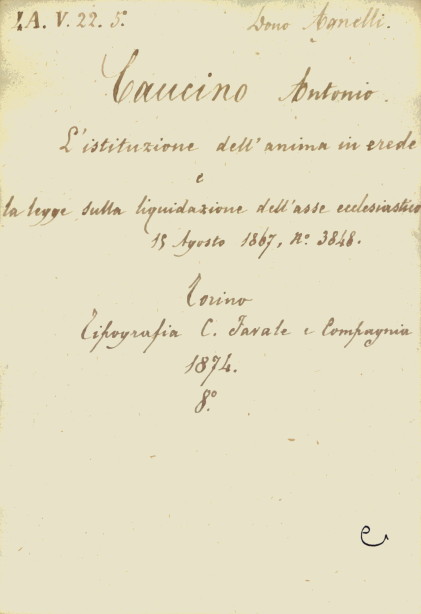 4A. V. 22. 5°
Dono Agnelli.
Caucino Antonio.
L'istituzione dell'anima in erede
e
la legge sulla liquidazione dell'asse ecclesiastico
15 Agosto 1867, N.° 3848.
Torino
Tipografia C. Favale e Compagnia
1874.
8°